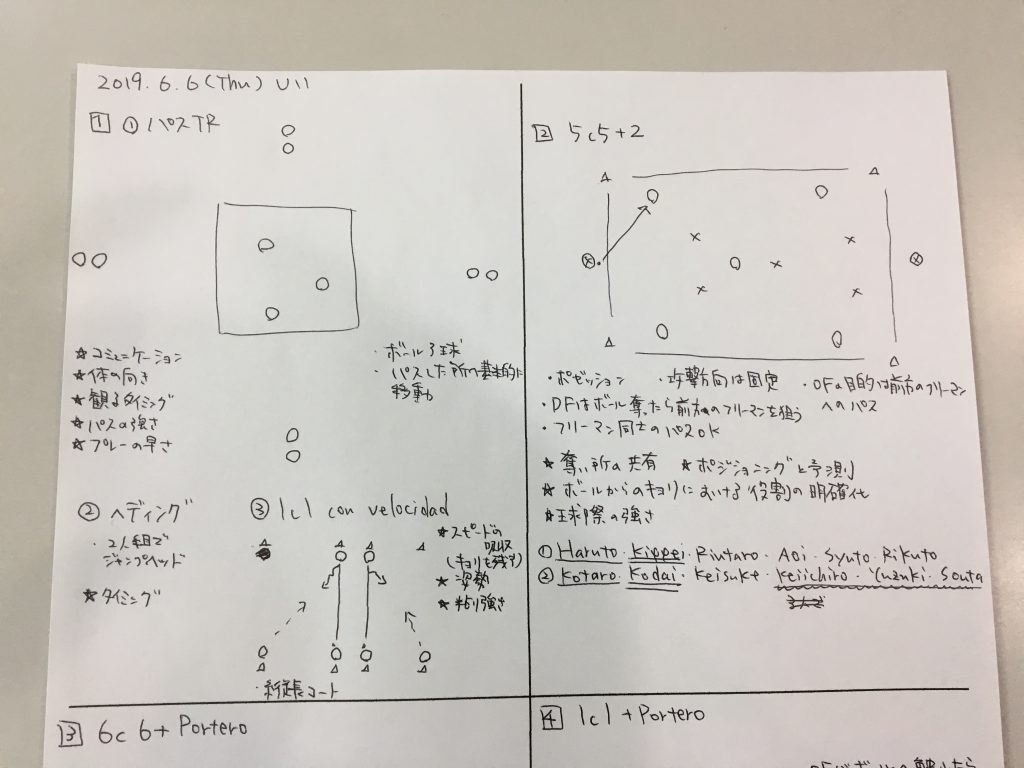 2019.6.6(Thu) U11
1 ① パスTR
★コミュニケーション
★体の向き
★観るタイミング
★パスの強さ
★プレーの早さ
・ボール3球
・パスした所へ基本的に
移動
② ヘディング
・2人組で
ジャンプヘッド
★タイミング
③ 1c1 con velocidad
★スピードの
吸収
(キョリを残す)
★姿勢
★粘り強さ
・縦長コート
2 5c5+2
・ポゼッション ・攻撃方向は固定 ・OFの目的は前方のフリーマン
へのパス
・DFはボール奪ったら前方のフリーマンを狙う
・フリーマン同士のパスOK
★奪い所の共有 ★ポジショニングと予測
★ボールからのキョリにおける役割の明確化
★球際の強さ
① Haruto・Kippei・Rintaro・Aoi・Syuto・Rikuto
② Kotaro・Kodai・Keisuke・Keiichiro・Yuzuki・Souta
3 6c6+Portero
4 1c1+Portero